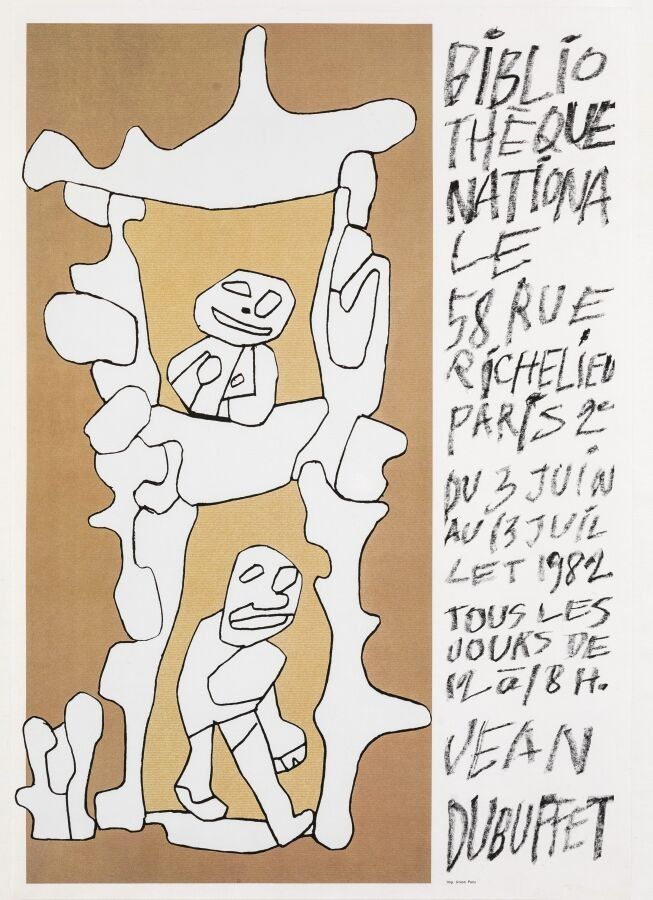 BIBLIO
THÈQUE
NATIONA
LE
58 RUE
RICHELIEU
PARIS 2e
DU 3 JUIN
AU 13 JUIL
LET 1982
TOUS LES
JOURS DE
12 à 18 H.
JEAN
DUBUFFET
Imp. Union Paris